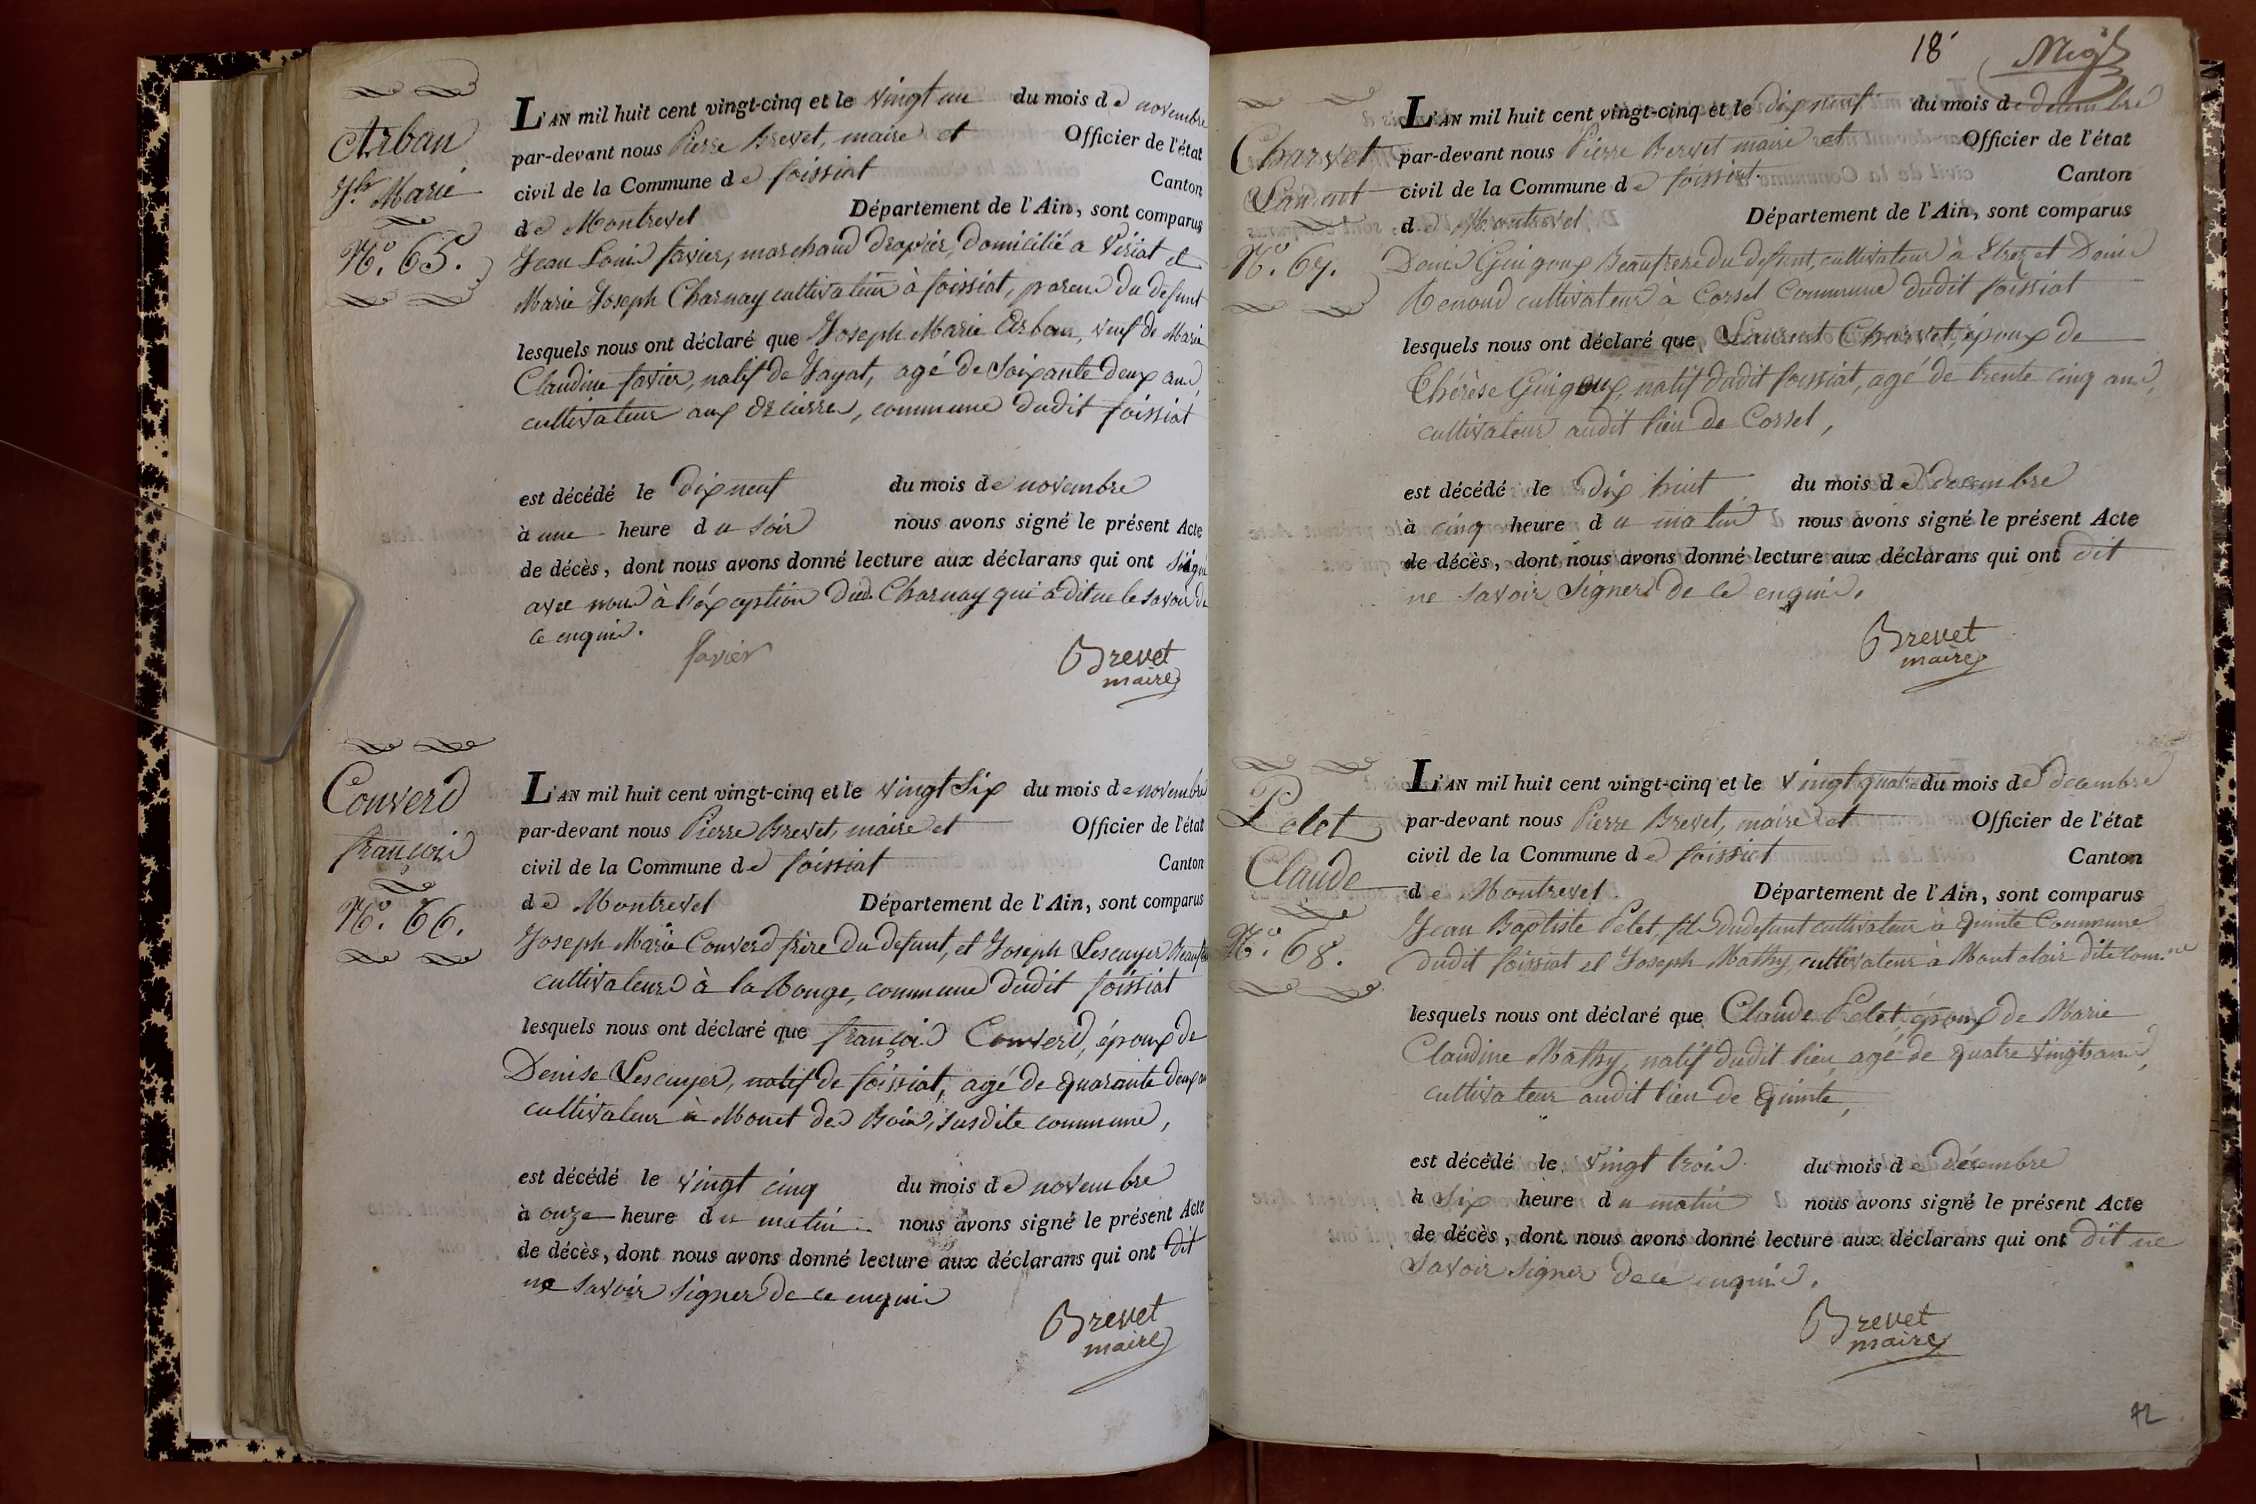 Arban
Jh. Marie
N.o 65.
L'AN mil huit cent vingt-cinq et le vingt un du mois de novembre
par-devant nous Pierre Brevet, maire et Officier de l'état
civil de la Commune de foissiat Canton
de Montrevel Département de l'Ain, sont comparus
Jean Louis favier, marchand drapier, domicilié a Viriat et
Marie Joseph Charnay cultivateur à foissiat, parens du defunt
lesquels nous ont déclaré que Joseph Marie Arban, veuf de Marie
Claudine favier, natif de Jayat, agé de Soixante deux ans,
cultivateur aux, commune dudit foissiat
est décédé le dix neuf du mois de novembre
à une heure du soir nous avons signé le présent Acte
de décès, dont nous avons donné lecture aux déclarans qui ont signé
avec nous à l'éxception dud. Charnay qui a dit ne le savoir de
ce enquis.
favier
Brevet
maire
Converd
françois
N.o 66.
L'AN mil huit cent vingt-cinq et le vingt Six du mois de novembre
par-devant nous Pierre Brevet, maire et Officier de l'état
civil de la Commune de foissiat Canton
de Montrevel Département de l'Ain, sont comparus
Joseph Marie Converd frère du defunt, et Joseph Lescuyer
cultivateurs à la Rouge, commune dudit foissiat
lesquels nous ont déclaré que françois Converd, époux de
Denise Lescuyer, natif de foissiat, agé de quarante deux
cultivateur à Monet des Bois, susdite commune,
est décédé le vingt cinq du mois de novembre
à onze heure du matin nous avons signé le présent Acte
de décès, dont nous avons donné lecture aux déclarans qui ont dit
ne savoir signer de ce enquis
Brevet
maire
18
Charvet
Laurent
N.o 67.
L'AN mil huit cent vingt-cinq et le dix neuf du mois de decembre
par-devant nous Pierre Brevet maire et Officier de l'état
civil de la Commune de foissiat Canton
de Montrevel Département de l'Ain, sont comparus
Denis Guigoux Beaufrere du defunt, cultivateur à Etrez et Denis
Renoud cultivateur à Corsel Commune dudit foissiat
lesquels nous ont déclaré que Laurent Charvet, époux de
Thérèse Guigoux, natif dudit foissiat, agé de trente cinq ans,
cultivateur audit lieu de Corsel,
est décédé le dix huit du mois de decembre
à cinq heure du matin nous avons signé le présent Acte
de décès, dont nous avons donné lecture aux déclarans qui ont dit
ne savoir signer de ce enquis.
Brevet
maire
Pelet
Claude
N.o 68.
L'AN mil huit cent vingt-cinq et le vingt quatre du mois de decembre
par-devant nous Pierre Brevet, maire et Officier de l'état
civil de la Commune de foissiat Canton
de Montrevel Département de l'Ain, sont comparus
Jean Baptiste Pelet, fils dudefunt cultivateur à quinte Commune
dudit foissiat et Joseph Mathy, cultivateur à Mont clair dite com.ne
lesquels nous ont déclaré que Claude Pelet, époux de Marie
Claudine Mathy, natif dudit lieu, agé de quatre vingts ans,
cultivateur audit lieu de quinte,
est décédé le vingt trois du mois de décembre
à six heure du matin nous avons signé le présent Acte
de décès, dont nous avons donné lecture aux déclarans qui ont dit ne
savoir signer de ce enquis.
Brevet
maire